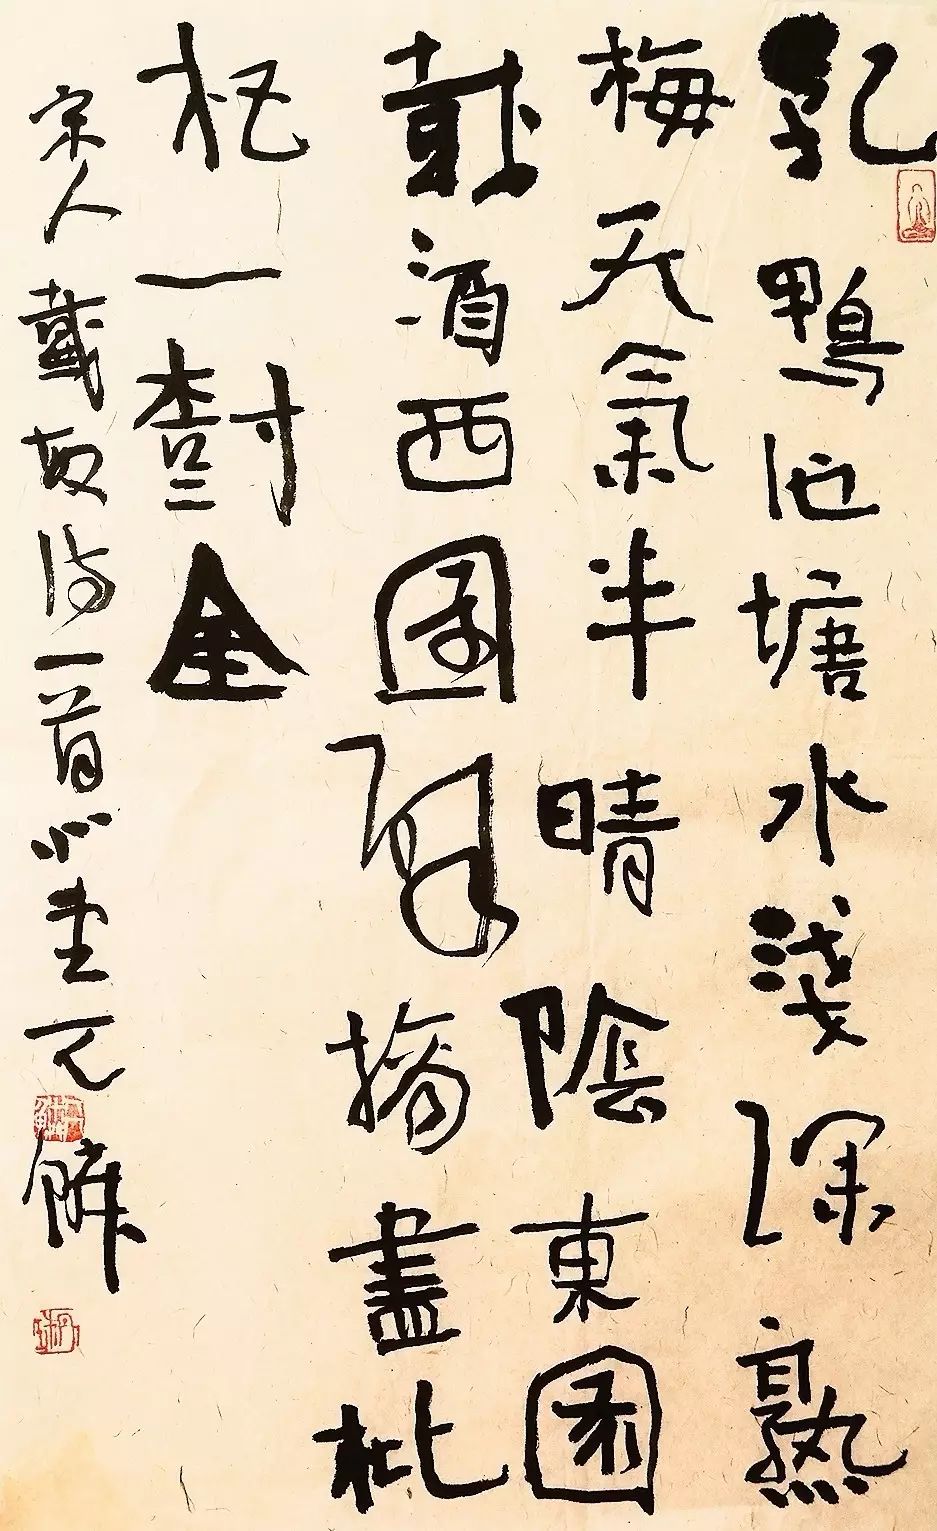 乳鴨池塘水淺深熟
梅天氣半晴陰東園
載酒西園醉摘盡枇
杷一樹金
宋人戴敏诗一首